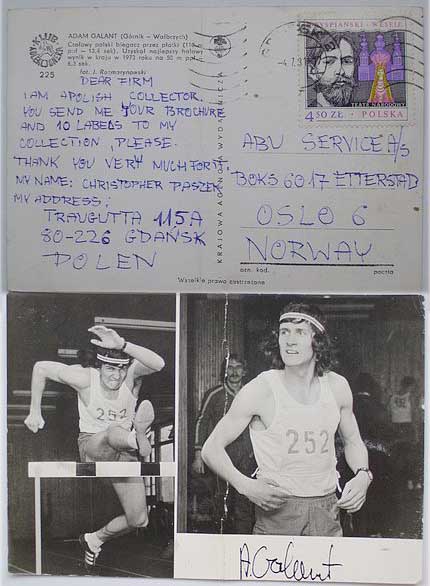 ADAM GALANT (Górnik - Wałbrzych)
Czołowy polski biegacz przez płotki (110 m
ppł - 13,4 sek). Uzyskał najlepszy halowy
wynik w kraju w 1973 roku na 50 m ppł -
6,3 sek.
225
fot. J. Rozmarynowski
DEAR FIRM
I AM APOLISH COLLECTOR.
YOU SEND ME YOUR BROCHURE
AND 10 LABELS TO MY
COLLECTION, PLEASE.
THANK YOU VERY MUCH FOR IT.
MY NAME: CHRISTOPHER PASZEK
MY ADDRESS:
TRAUGUTTA 115A
80-226 GDAŃSK
POLEN
KRAJOWA AGENCJA WYDAWNICZA
WYSPIAŃSKI - WESELE
TEATR NARODOWY
4.50 ZŁ · POLSKA
ABU SERVICE A/S
BOKS 6017 ETTERSTAD
OSLO 6
NORWAY
ozn. kod.
poczta
Wszelkie prawa zastrzeżone
252
252
A. Galant